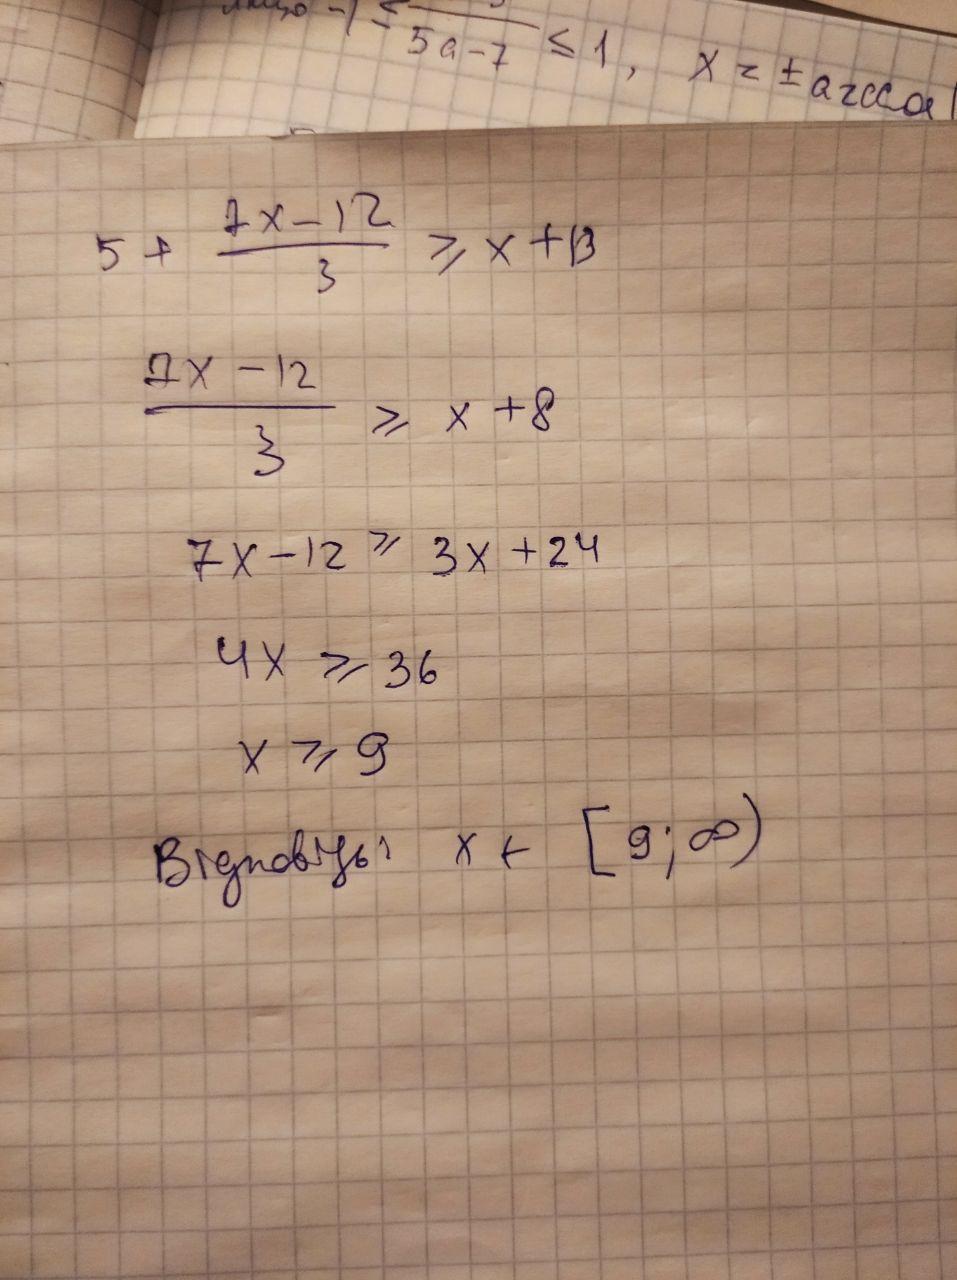 5a-7 ≤ 1, x = ± arccos
5 + \frac{7x-12}{3} ≥ x+13
\frac{7x-12}{3} ≥ x+8
7x-12 ≥ 3x+24
4x ≥ 36
x ≥ 9
Відповідь: x ∈ [9; ∞)